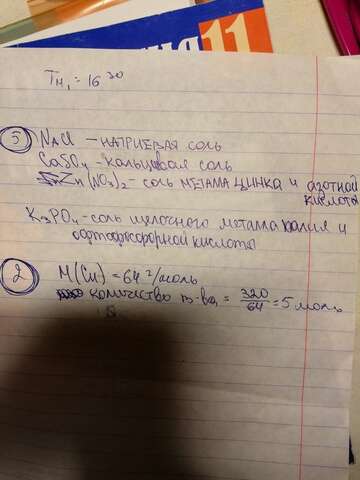 11
Tн₁ = 16³⁰
5 NaCl – натриевая соль
CaSO₄ – кальциевая соль
Zn(NO₃)₂ – соль металла цинка и азотной
кислоты
K₃PO₄ – соль щелочного металла калия и
ортофосфорной кислоты
2 M(Cu) = 64 г/моль
количество в-ва = 320/64 = 5 моль